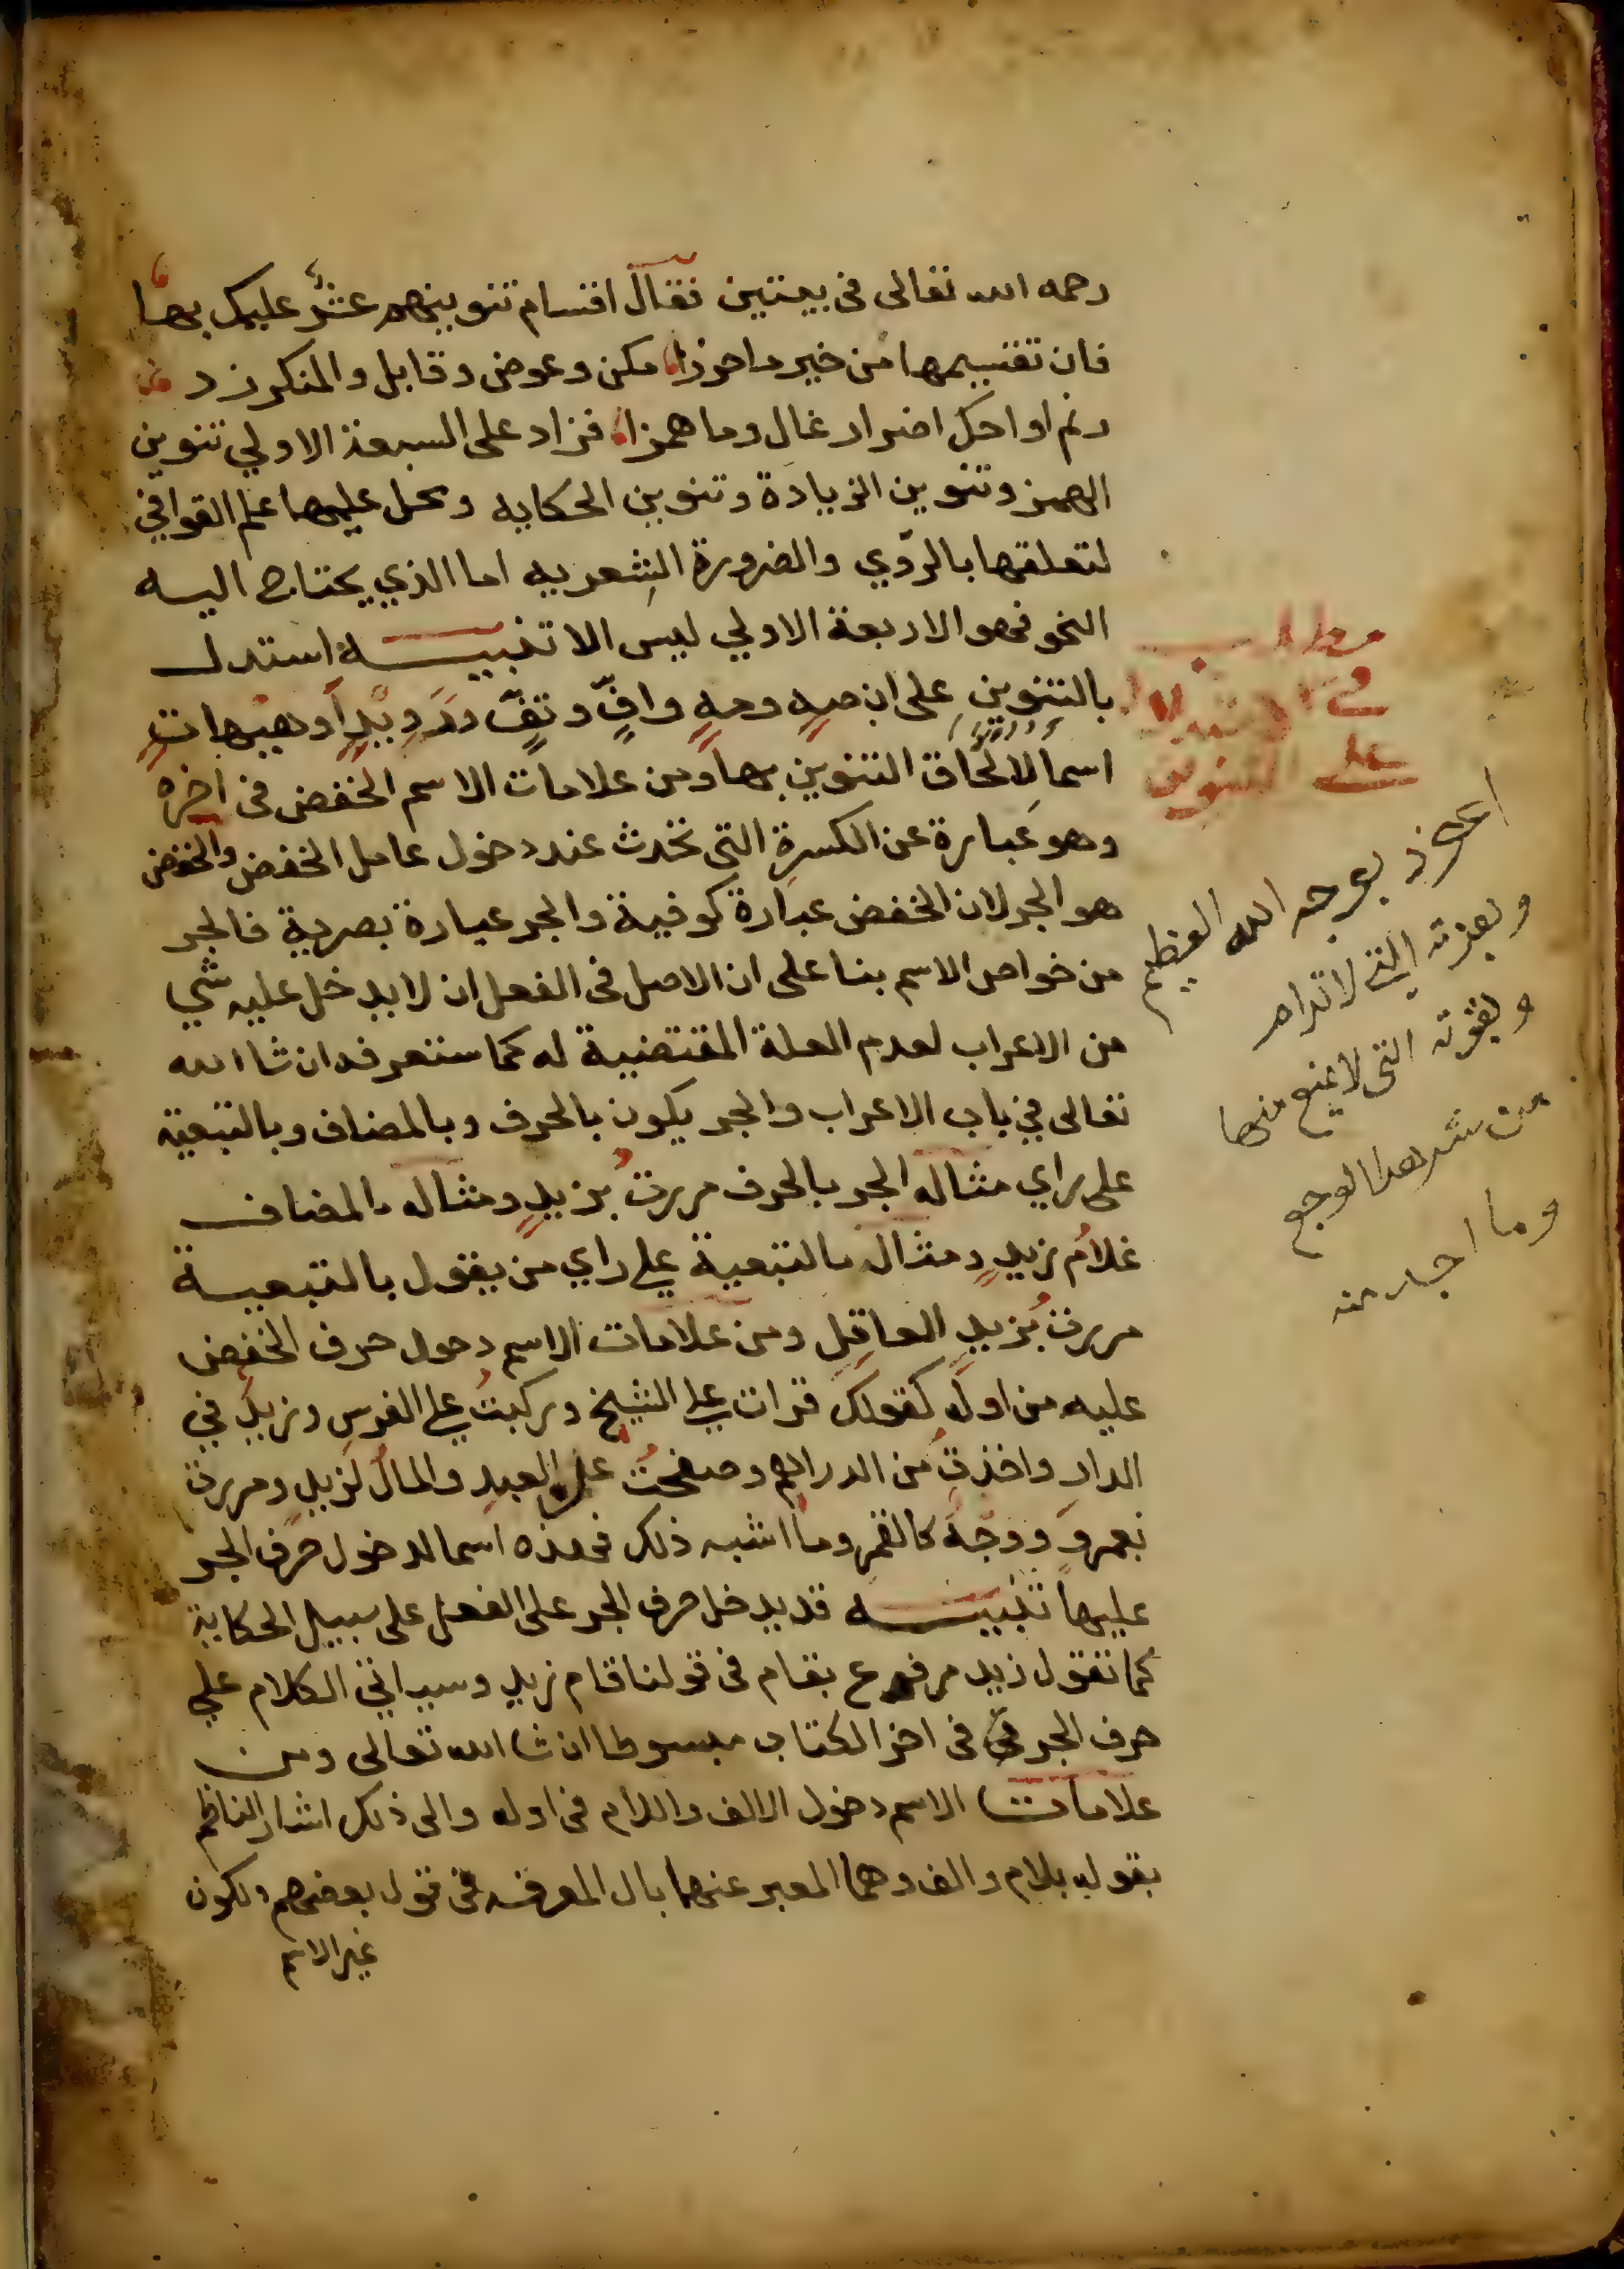 رحمه الله تعالى فى بيتين فقال اقسام تنوينهم عشر عليك بها
فان تقسيمها من خير ما حرزا مكن وعوض وقابل والمنكر زد
رنم او احك اضرار غال وما همزا فزاد على السبعة الاولي تنوين
الهمز وتنوين الزيادة وتنوين الحكايه ومحل عليها علم القوافي
لتعلقها بالروّي والضرورة الشعريه اما الذي يحتاج اليه
النحو فهو الاربعة الاولي ليس الا تنبيه استدل
بالتنوين على ان صهٍ ومهٍ وافٍّ وتفٍّ ورويدٍاً وهيهاتٍ
اسما لالحاق التنوين بها ومن علامات الاسم الخفض فى اخره
وهو عبارة عن الكسرة التى تحدث عند دخول عامل الخفض والخفض
هو الجر لان الخفض عبارة كوفية والجر عبارة بصرية فالجر
من خواص الاسم بنا على ان الاصل فى الفعل ان لا يدخل عليه شي
من الاعراب لعدم العلة المقتضية له كما ستعرفه ان شا الله
تعالى في باب الاعراب والجر يكون بالحرف وبالمضاف وبالتبعية
على راي مثاله الجر بالحرف مررت بزيدٍ ومثاله بالمضاف
غلامُ زيدٍ ومثاله بالتبعية علي راي من يقول بالتبعية
مررت بزيدٍ العاقلِ ومن علامات الاسم دخول حرف الخفض
عليه من اوله كقولك قرات علي الشيخ وركبتُ علي الفرس وزيد في
الدار واخذت من الدراهم وصفحتُ عن العبد والمالُ لزيدٍ ومررت
بعمرو ووجهه كالقمر وما اشبه ذلك فهذه اسما لدخول حرف الجر
عليها تنبيه قد يدخل حرف الجر على الفعل على سبيل الحكاية
كما تقول زيد مرفوع بقام فى قولنا قام زيد وسياتي الكلام علي
حرف الجر في اخر الكتاب مبسوطا ان شا الله تعالى ومن
علامات الاسم دخول الالف واللام فى اوله والى ذلك اشار الناظم
بقوله بلام والف وهما المعبر عنهما بال المعرفه فى قول بعضهم ولكون
غير الاسم
مطلب
في الاستدلال
على التنوين
اعوذ بوجه الله العظيم
وبعزته التي لا ترام
وبقوته التى لا يمنع منها
من شر هذا الوجع
وما اجد منه